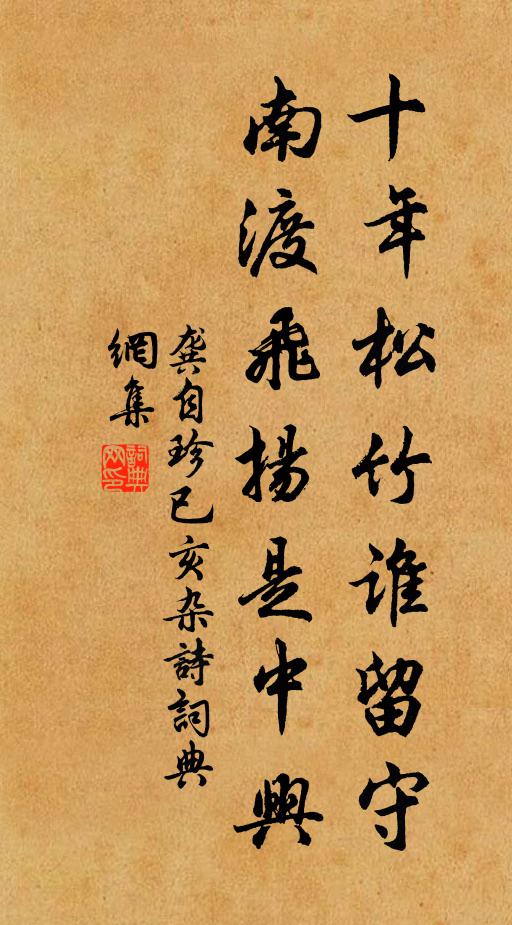 十年松竹誰留守
南渡飛揚是中興
龚自珍已亥杂詩詞典
網集
詞典
网印